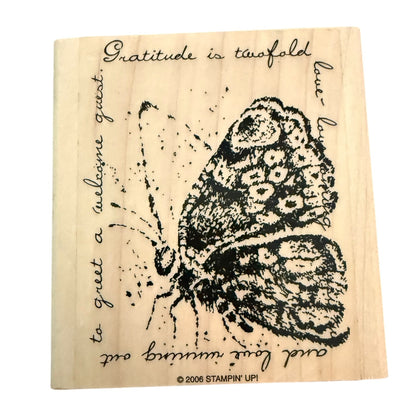 Gratitude is twofold
love
and love running out
to greet a welcome guest.
© 2006 STAMPIN' UP!